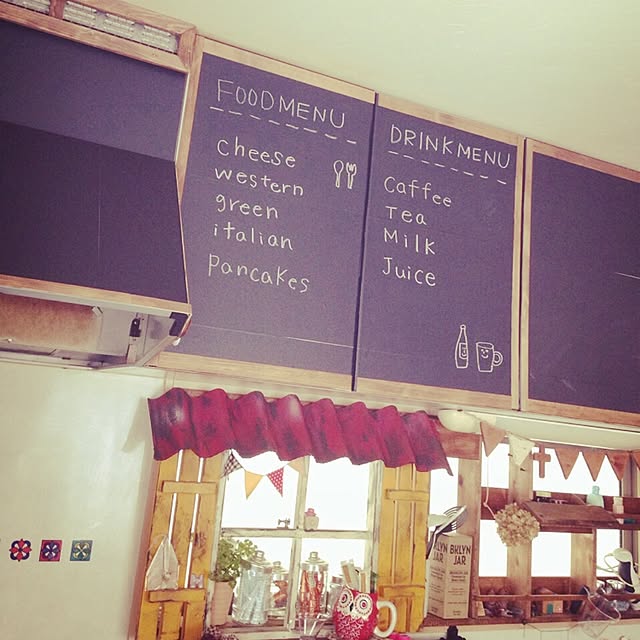 FOOD MENU
Cheese
western
green
italian
pancakes
DRINK MENU
Caffee
Tea
Milk
Juice
BKLYN
JAR
BKLYN
JAR